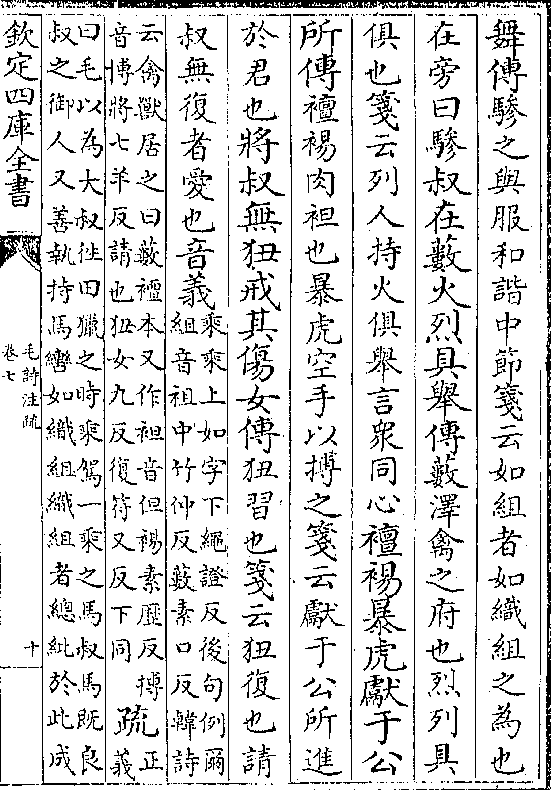 舞傳驂之與服和諧中節箋云如組者如織組之為也
在旁曰驂叔在藪火烈具舉傳藪澤禽之府也烈列具
俱也箋云列人持火俱舉言衆同心襢裼暴虎獻于公
所傳襢裼肉袒也暴虎空手以搏之箋云獻于公所進
於君也將叔無狃戒其傷女傳狃習也箋云狃復也請
叔無復者愛也音義
乘乘上如字下繩證反後句例爾
組音祖中竹仲反藪素口反韓詩
云禽獸居之曰藪襢本又作袒音但裼素歷反搏
音博將七羊反請也狃女九反復符又反下同
疏
正
義
曰毛以為大叔徃田獵之時乘駕一乘之馬叔馬既良
叔之御人又善執持馬轡如織組織組者總紕於此成
欽定四庫全書
毛詩注疏
卷七
十